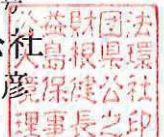 公社
彦
公益財団法
人島根県環
境保健公社
理事長之印